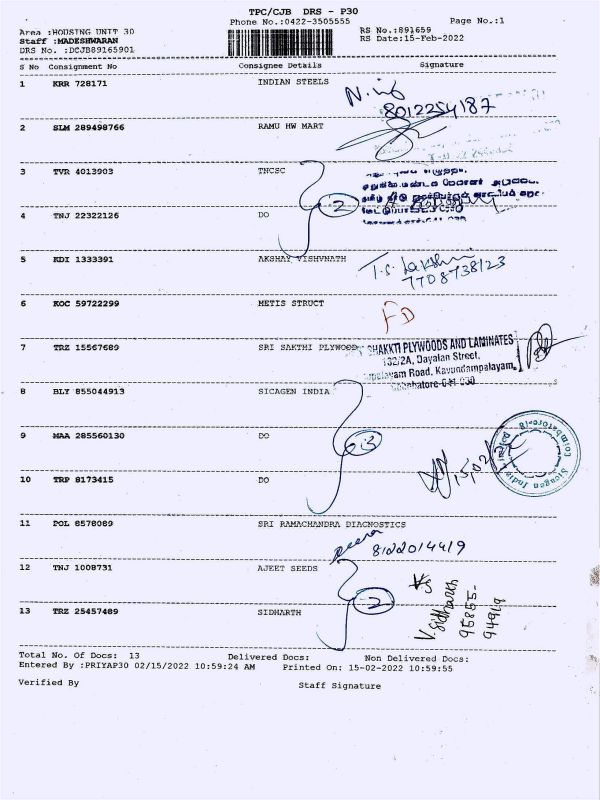 TPC/CJB DRS - P30
Phone No.:0422-3505555
Page No.:1
Area :HOUSING UNIT 30
RS No.:891659
Staff :MADESHWARAN
RS Date:15-Feb-2022
DRS No. :DCJB89165901
S No Consignment No Consignee Details Signature
1 KRR 728171 INDIAN STEELS
8012254187
2 SLM 289498766 RAMU HW MART
3 TVR 4013903 TNCSC
2
4 TNJ 22322126 DO
5 KDI 1333391 AKSHAY VISHVNATH
T.S. Lakshmi
7708738123
6 KOC 59722299 METIS STRUCT
FD
7 TRZ 15567689 SRI SAKTHI PLYWOOD
SHAKKTI PLYWOODS AND LAMINATES
132/2A, Dayalan Street,
Road, Kavundampalayam,
8 BLY 855044913 SICAGEN INDIA
9 MAA 285560130 DO
3
Sicagen India
Coimbatore-18
10 TRP 8173415 DO
11 POL 8578089 SRI RAMACHANDRA DIAGNOSTICS
8122014419
12 TNJ 1008731 AJEET SEEDS
2
13 TRZ 25457489 SIDHARTH
V. Sidharth
95855-
94919
Total No. Of Docs: 13 Delivered Docs: Non Delivered Docs:
Entered By :PRIYAP30 02/15/2022 10:59:24 AM Printed On: 15-02-2022 10:59:55
Verified By Staff Signature